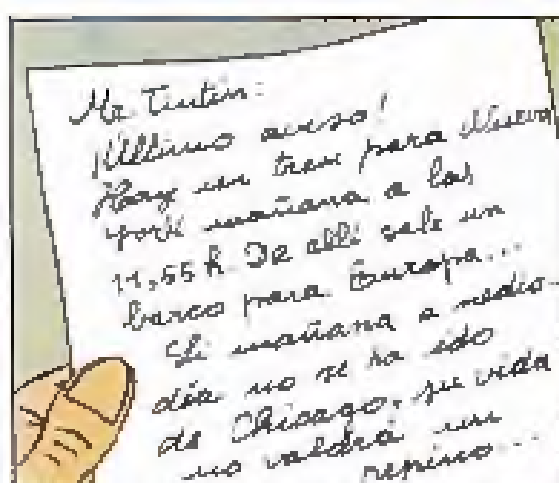 Mr. Tintín:
¡Ultimo aviso!
Hay un tren para Nueva
York mañana a las
11,55 h. De allí sale un
barco para Europa...
Si mañana a medio-
día no se ha ido
de Chicago, su vida
no valdrá un
pepino...